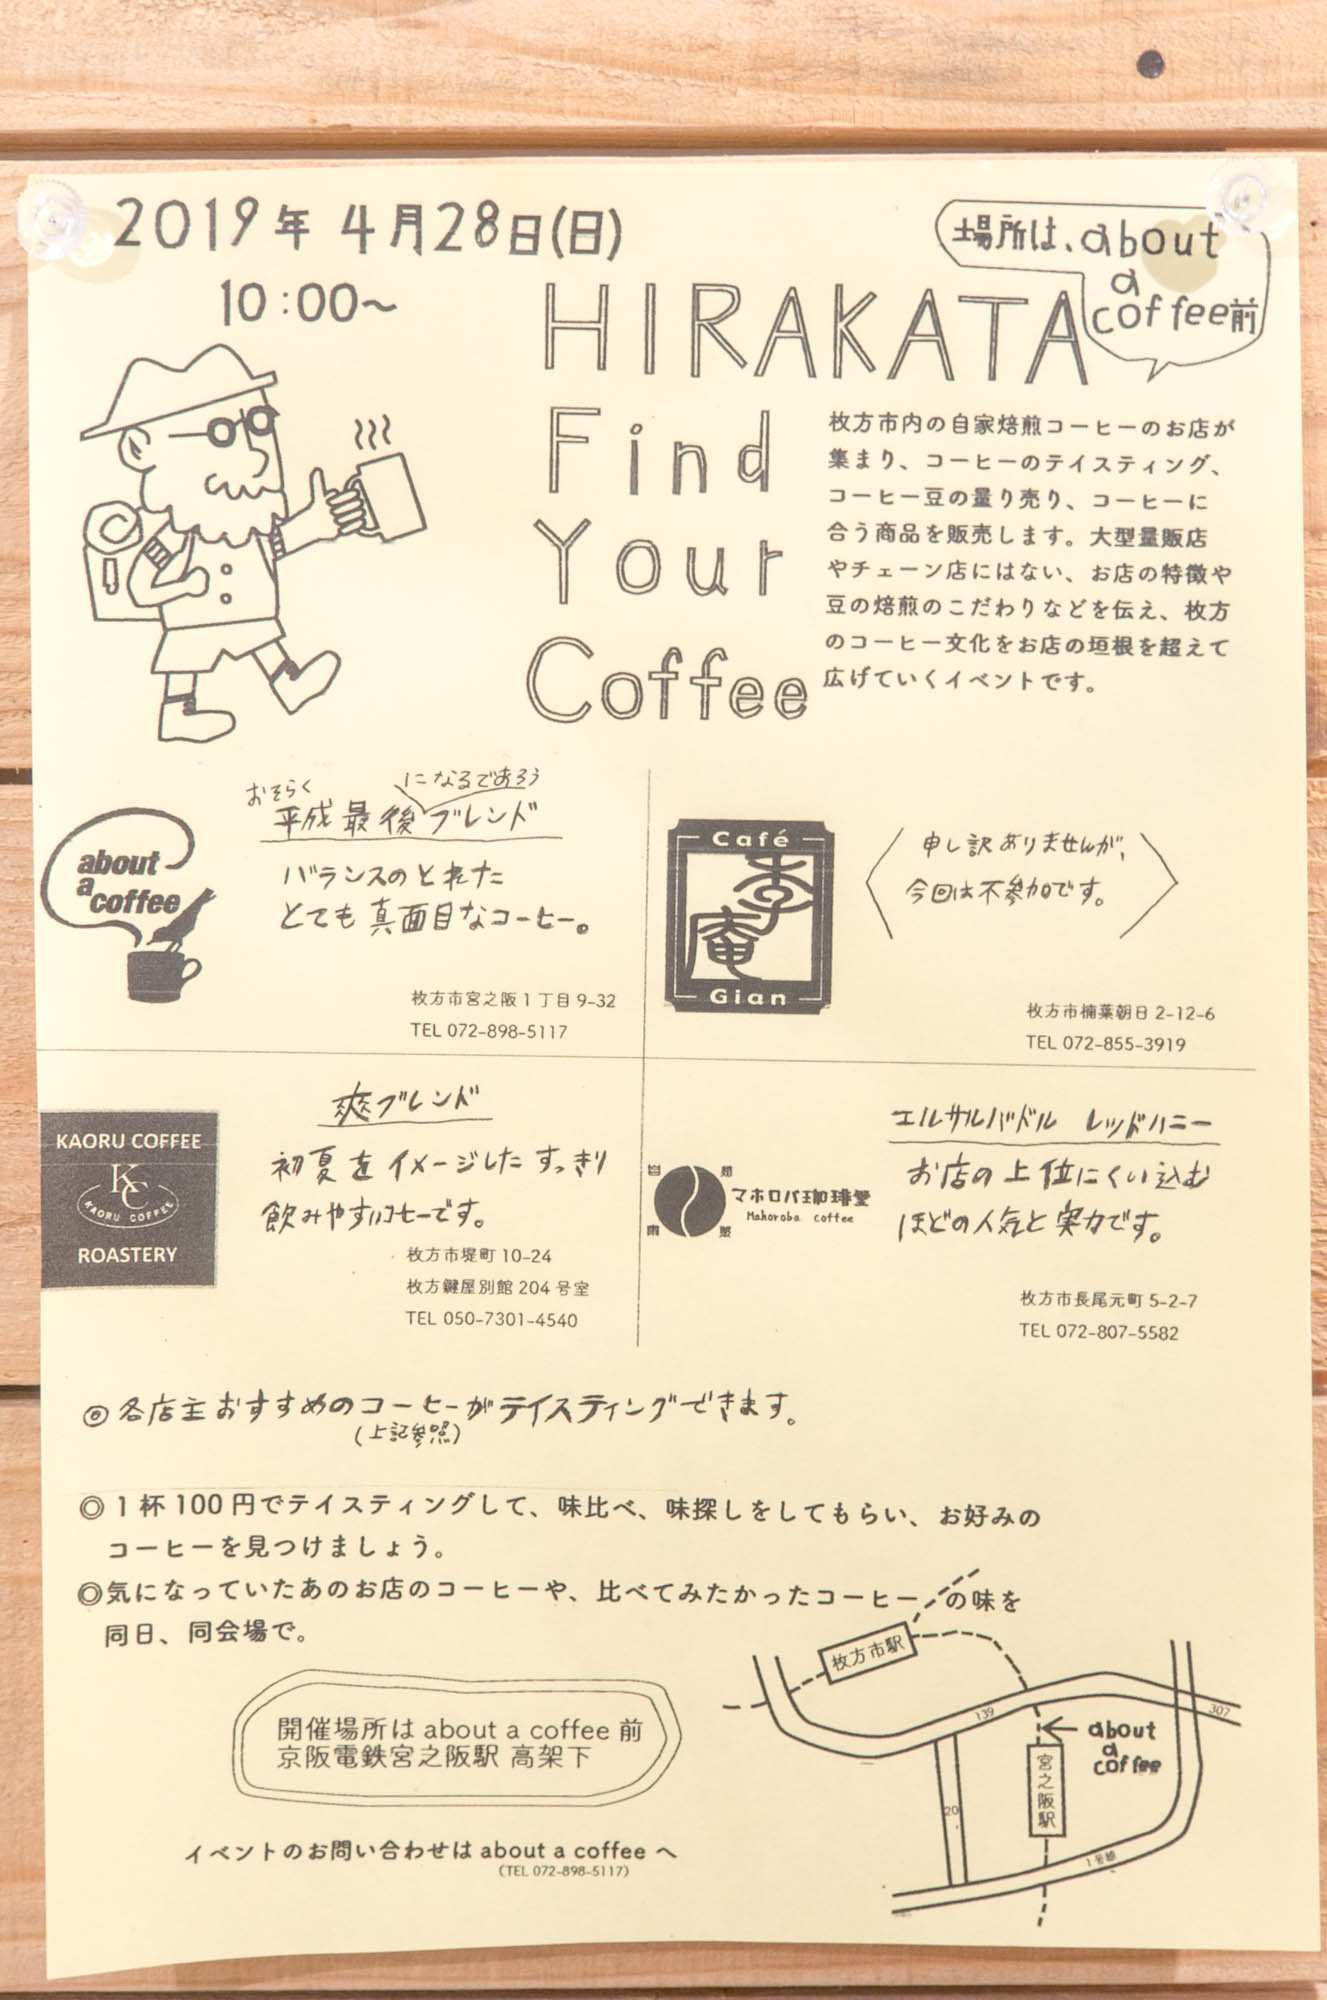 2019年 4月28日(日)
10:00〜
場所は、about
a
coffee前
HIRAKATA
Find
Your
Coffee
枚方市内の自家焙煎コーヒーのお店が
集まり、コーヒーのテイスティング、
コーヒー豆の量り売り、コーヒーに
合う商品を販売します。大型量販店
やチェーン店にはない、お店の特徴や
豆の焙煎のこだわりなどを伝え、枚方
のコーヒー文化をお店の垣根を超えて
広げていくイベントです。
about
a
coffee
おそらく
になるであろう
平成最後ブレンド
バランスのとれた
とても真面目なコーヒー。
枚方市宮之阪1丁目9-32
TEL 072-898-5117
Café
季
庵
Gian
申し訳ありませんが、
今回は不参加です。
枚方市楠葉朝日2-12-6
TEL 072-855-3919
KAORU COFFEE
KC
KAORU COFFEE
ROASTERY
爽ブレンド
初夏をイメージしたすっきり
飲みやすいコーヒーです。
枚方市堤町10-24
枚方鍵屋別館204号室
TEL 050-7301-4540
自
家
焙
煎
マホロバ珈琲堂
Mahoroba coffee
エルサルバドル レッドハニー
お店の上位にくい込む
ほどの人気と実力です。
枚方市長尾元町5-2-7
TEL 072-807-5582
◎各店主おすすめのコーヒーがテイスティングできます。
(上記参照)
◎1杯100円でテイスティングして、味比べ、味探しをしてもらい、お好みの
コーヒーを見つけましょう。
◎気になっていたあのお店のコーヒーや、比べてみたかったコーヒーの味を
同日、同会場で。
開催場所はabout a coffee前
京阪電鉄宮之阪駅 高架下
イベントのお問い合わせはabout a coffeeへ
(TEL 072-898-5117)
枚方市駅
139
307
about
a
coffee
宮之阪駅
20
1号線